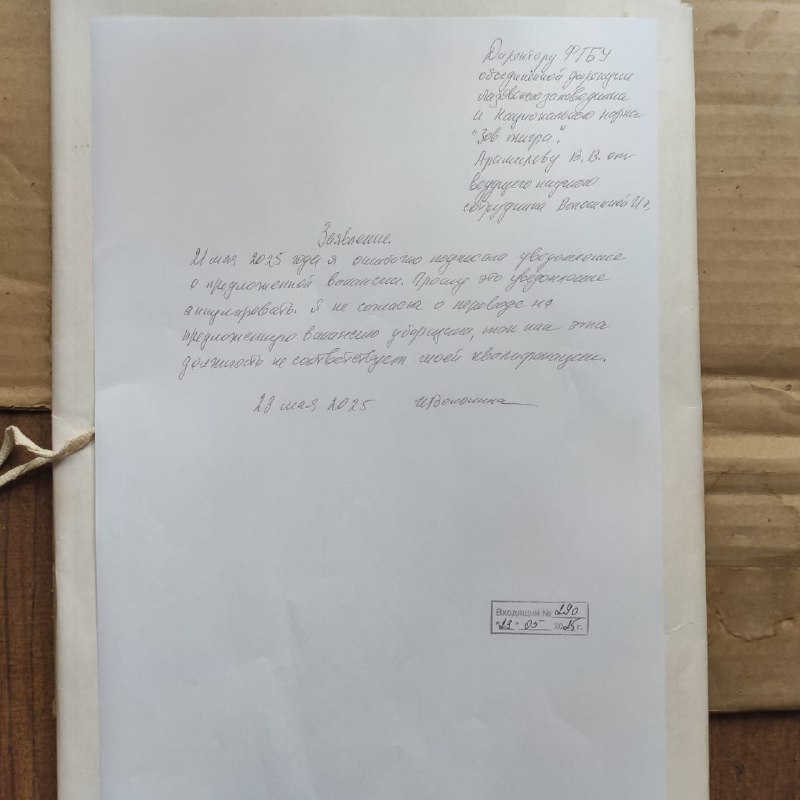 Директору ФГБУ
объединённой дирекции
Лазовского заповедника
и Национального парка
"Зов тигра".
Арамилеву В. В. от
ведущего научного
сотрудника Волошиной И.В.
Заявление.
21 мая 2025 года я ошибочно подписала уведомление
о предложенной вакансии. Прошу это уведомление
аннулировать. Я не согласна о переводе на
предложенную вакансию уборщицы, так как эта
должность не соответствует моей квалификации.
23 мая 2025 ИВолошина
Входящий № 290
"23" 05 2025 г.